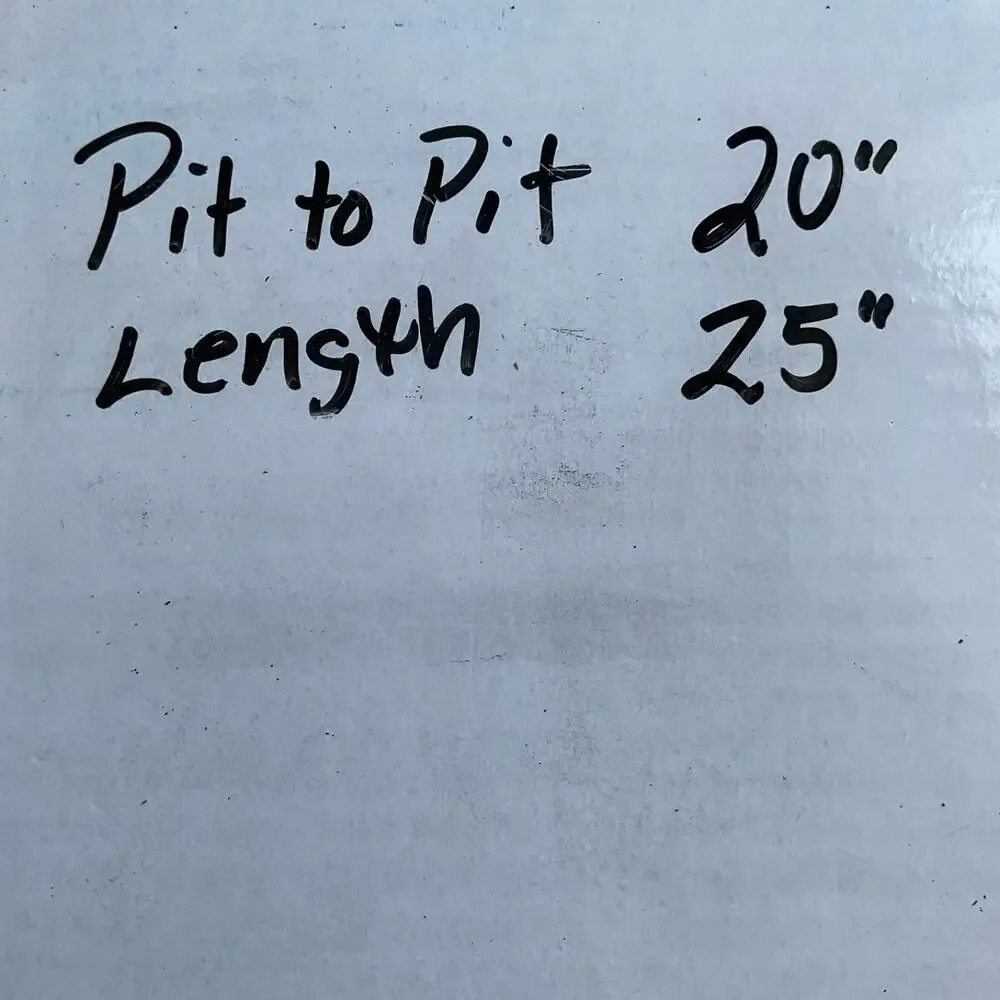 Pit to Pit 20"
Length 25"